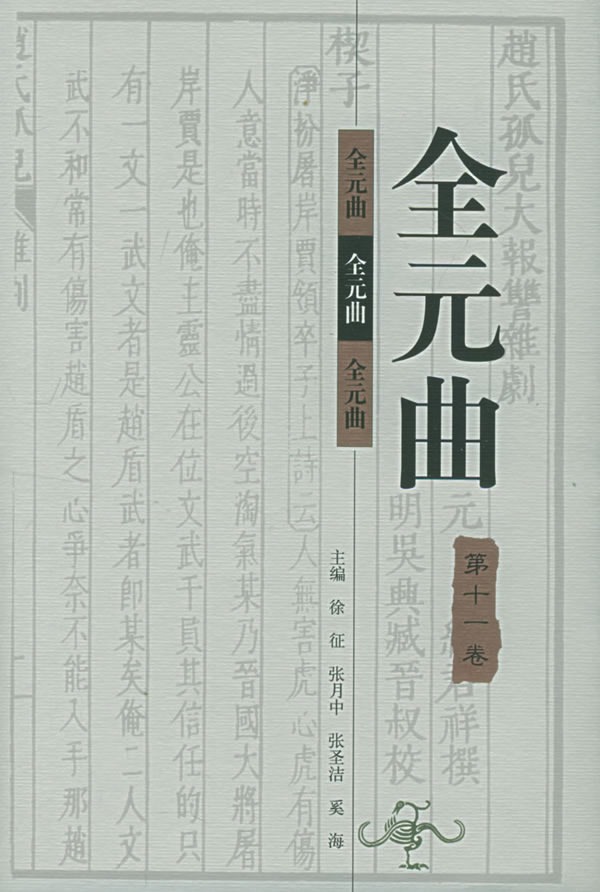 全元曲
第十一卷
全元曲
全元曲
全元曲
主编 徐征 张月中 张圣洁 奚海
趙氏孤兒大報讐雜劇
元 紀君祥撰
明吳興臧晉叔校
楔子
淨扮屠岸賈領卒子上詩云人無害虎心虎有傷
人意當時不盡情過後空淘氣某乃晉國大將屠
岸賈是也俺主靈公在位文武千員其信任的只
有一文一武文者是趙盾武者即某矣俺二人文
武不和常有傷害趙盾之心爭奈不能入手那趙